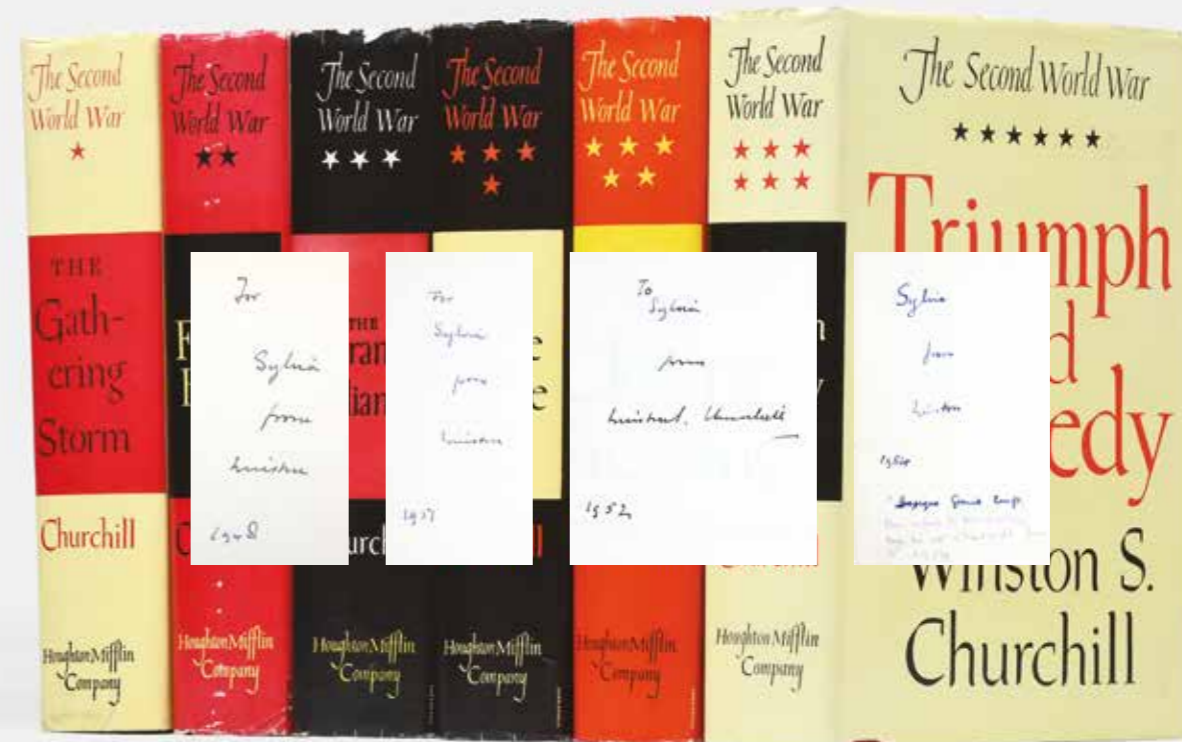 The Second
World War
★
THE
Gath-
ering
Storm
Churchill
Houghton Mifflin
Company
The Second
World War
★★
Houghton Mifflin
Company
The Second
World War
★ ★ ★
THE
Houghton Mifflin
Company
The Second
World War
★ ★ ★
★
Houghton Mifflin
Company
The Second
World War
★ ★ ★
★ ★
Houghton Mifflin
Company
The Second
World War
★ ★ ★
★ ★ ★
Houghton Mifflin
Company
The Second World War
★★★★★★
Triumph
edy
Winston S.
Churchill
For
Sylvia
from
Winston
1948
For
Sylvia
from
Winston
To
Sylvia
from
Winston S. Churchill
1952
Sylvia
from
Winston